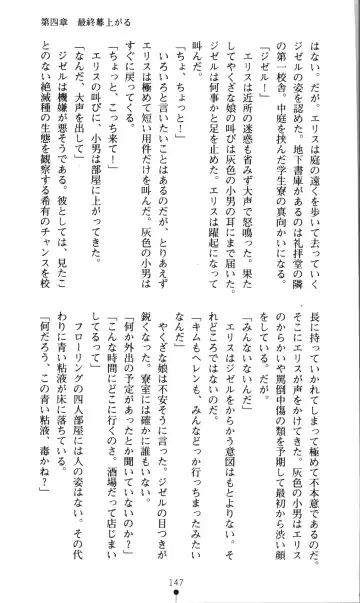 第四章　最終幕上がる
はない。だが、エリスは庭の遠くを歩いて去っていく
ジゼルの姿を認めた。地下書庫があるのは礼拝堂の隣
の第一校舎。中庭を挟んだ学生寮の真向かいになる。
「ジゼル！」
　エリスは近所の迷惑も省みず大声で怒鳴った。果た
してやくざな娘の叫びは灰色の小男の耳にまで届いた。
ジゼルは何事かと足を止めた。エリスは躍起になって
叫んだ。
「ちょ、ちょっと！」
　いろいろと言いたいことはあるのだが、とりあえず
エリスは極めて短い用件だけを叫んだ。灰色の小男は
すぐに戻ってくる。
「ちょっと、こっち来て！」
　エリスの叫びに、小男は部屋に上がってきた。
「なんだ、大声を出して」
　ジゼルは機嫌が悪そうである。彼としては、見たこ
とのない絶滅種の生態を観察する希有のチャンスを校
長に持っていかれてしまって極めて不本意であるのだ。
そこにエリスが声をかけてきた。灰色の小男はエリス
のからかいや罵倒中傷の類を予期して最初から渋い顔
をしている。だが。
「みんないないんだ」
　エリスはジゼルをからかう意図はもとよりないし、そ
れどころではないのだ。
「キムもヘレンも、みんなどっか行っちまったみたい
なんだ」
　やくざな娘は不安そうに言った。ジゼルの目つきが
鋭くなった。寮室には確かに誰もいない。
「何か外出の予定があったとか聞いていないのか？」
「こんな時間にどこに行くのさ。酒場だって店じまい
してるって」
　フローリングの四人部屋には人の姿はない。その代
わりに青い粘液が床に落ちている。
「何だろう、この青い粘液、毒かね？」
147